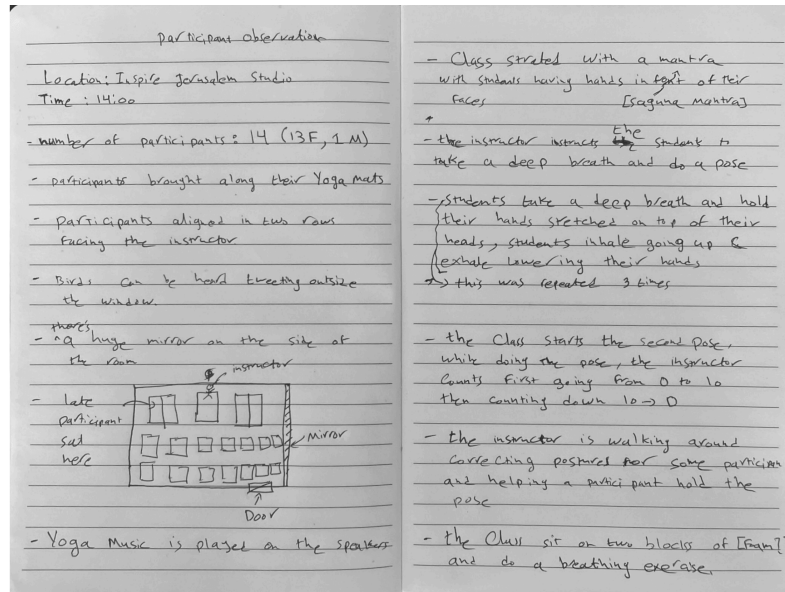 participant observation
Location: Inspire Jerusalem Studio
Time : 14:00
- number of participants: 14 (13F, 1 M)
- participants brought along their Yoga mats
- participants aligned in two rows
facing the instructor
- Birds can be heard tweeting outside
the window.
- there's a huge mirror on the side of
the room
instructor
- late
participant
sat
here
Mirror
Door
- Yoga Music is played on the speakers
- Class strated with a mantra
with students having hands in of their
faces [saguna mantra]
- the instructor instructs the student to
take a deep breath and do a pose
- students take a deep breath and hold
their hands stretched on top of their
heads, students inhale going up &
exhale lowering their hands
→ this was repeated 3 times
- the Class starts the second pose,
while doing the pose, the instructor
counts first going from 0 to 10
then counting down 10 → 0
- the instructor is walking around
correcting postures for some participan
and helping a participant hold the
pose
- the Class sit on two blocks of [Foam?]
and do a breathing exerase.